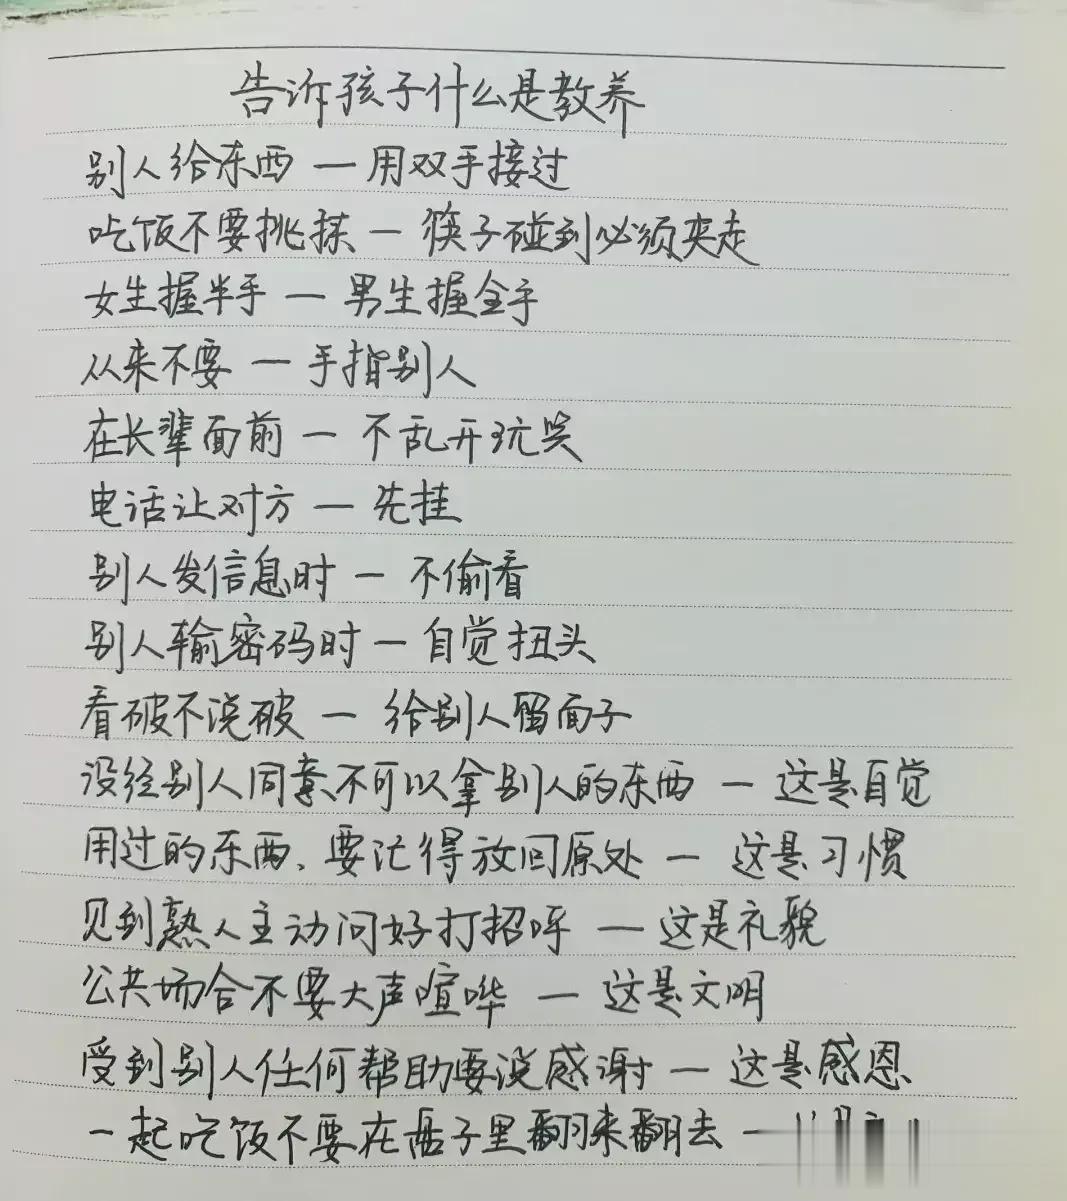 告诉孩子什么是教养
别人给东西 — 用双手接过
吃饭不要挑拣 — 筷子碰到必须夹走
女生握半手 — 男生握全手
从来不要 — 手指别人
在长辈面前 — 不乱开玩笑
电话让对方 — 先挂
别人发信息时 — 不偷看
别人输密码时 — 自觉扭头
看破不说破 — 给别人留面子
没经别人同意不可以拿别人的东西 — 这是自觉
用过的东西、要记得放回原处 — 这是习惯
见到熟人主动问好打招呼 — 这是礼貌
公共场合不要大声喧哗 — 这是文明
受到别人任何帮助要说感谢 — 这是感恩
一起吃饭不要在盘子里翻来翻去 —